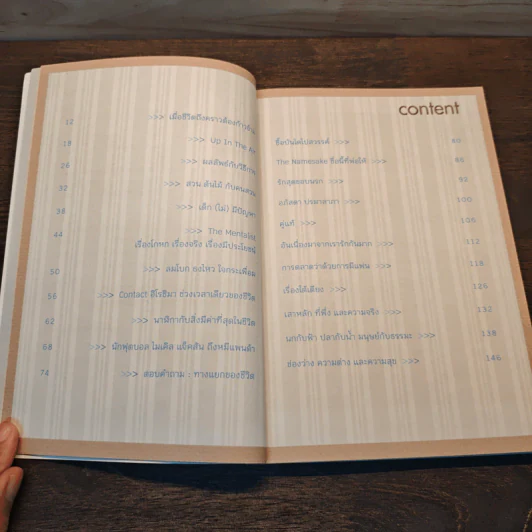 12 >>> เมื่อชีวิตถึงคราวต้องก้าวข้าม
18 >>> Up In The Air
26 >>> ผลลัพธ์กับวิธีการ
32 >>> สวน ต้นไม้ กับคนสวน
38 >>> เด็ก (ไม่) มีปัญหา
44 >>> The Mentalist
เรื่องโกหก เรื่องจริง เรื่องมีประโยชน์
50 >>> ลมโบก ธงไหว ใจกระเพื่อม
56 >>> Contact ฮิโรชิมา ช่วงเวลาเดียวของชีวิต
62 >>> นาฬิกากับสิ่งมีค่าที่สุดในชีวิต
68 >>> นักฟุตบอล ไมเคิล แจ็คสัน ถึงหมีแพนด้า
74 >>> ตอบคำถาม : ทางแยกของชีวิต
content
ชื่อบันไดไปสวรรค์ >>> 80
The Namesake ชื่อนี้ที่พ่อให้ >>> 86
รักสุดขอบนรก >>> 92
>>> 100
คู่แท้ >>> 106
อันเนื่องมาจากเรารักกันมาก >>> 112
การตลาดว่าด้วยการมีแฟน >>> 118
เรื่องใต้เตียง >>> 126
เสาหลัก ที่พึ่ง และความจริง >>> 132
นกกับฟ้า ปลากับน้ำ มนุษย์กับธรรมะ >>> 138
ช่องว่าง ความต่าง และความสุข >>> 146